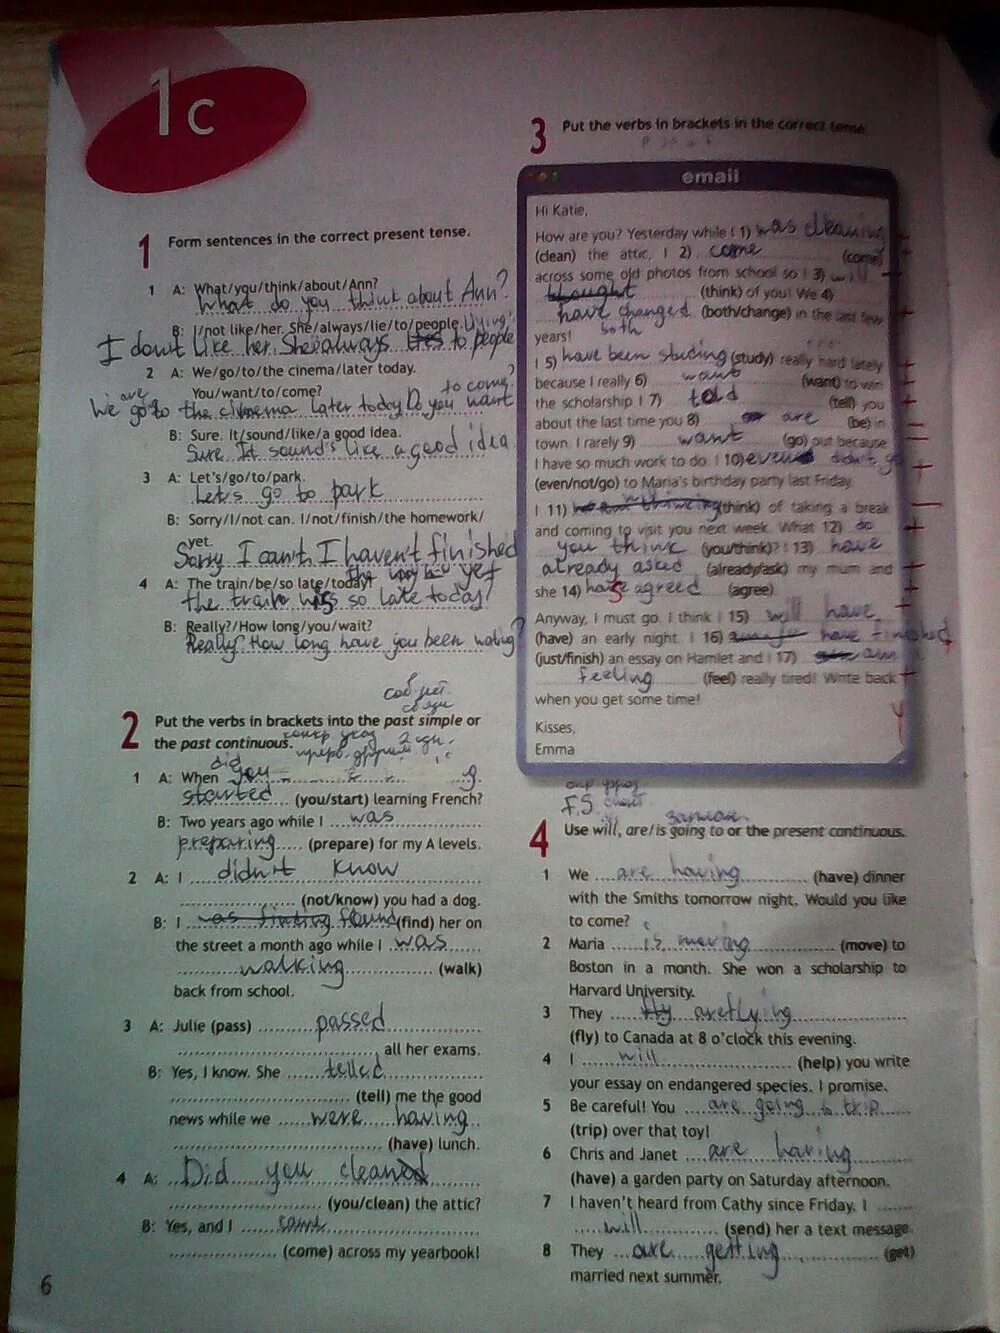 1c
1 Form sentences in the correct present tense.
1 A: What/you/think/about/Ann?
What do you think about Ann?
B: I/not like/her. She/always/lie/to/people.
lying
I don't like her. She's always to people
2 A: We/go/to/the cinema/later today.
You/want/to/come?
are to come?
We go to the cinema later today Do you want
B: Sure. It/sound/like/a good idea.
Sure It sound's like a good idea
3 A: Let's/go/to/park.
Let's go to park
B: Sorry/I/not can. I/not/finish/the homework/
yet.
Sorry I can't I haven't finished
the yet
4 A: The train/be/so late/today!
the train was so late today!
B: Really?/How long/you/wait?
Really? How long have you been
2 Put the verbs in brackets into the past simple or
the past continuous.
did
1 A: When you
started (you/start) learning French?
B: Two years ago while I was
preparing (prepare) for my A levels.
2 A: I didn't know
(not/know) you had a dog.
B: I was finding found (find) her on
the street a month ago while I was
walking (walk)
back from school.
3 A: Julie (pass) passed
all her exams.
B: Yes, I know. She telled
(tell) me the good
news while we were having
(have) lunch.
4 A: Did you cleaned
(you/clean) the attic?
B: Yes, and I came
(come) across my yearbook!
6
3 Put the verbs in brackets in the correct tense.
email
Hi Katie,
How are you? Yesterday while I 1) was cleaning
(clean) the attic, I 2) come (come)
across some old photos from school so I 3) will
thought (think) of you! We 4)
have changed (both/change) in the last few
both
years!
I 5) have been studing (study) really hard lately
because I really 6) want (want) to win
the scholarship I 7) told (tell) you
about the last time you 8) are (be) in
town. I rarely 9) want (go) out because
I have so much work to do. I 10) even didn't go
(even/not/go) to Maria's birthday party last Friday.
I 11) (think) of taking a break
and coming to visit you next week. What 12) do
you think (you/think)? I 13) have
already asked (already/ask) my mum and
she 14) has agreed (agree)
Anyway, I must go. I think I 15) will have
(have) an early night. I 16) have finished
(just/finish) an essay on Hamlet and I 17) am
feeling (feel) really tired! Write back
when you get some time!
Kisses,
Emma
4 Use will, are/is going to or the present continuous.
1 We are having (have) dinner
with the Smiths tomorrow night. Would you like
to come?
2 Maria is moving (move) to
Boston in a month. She won a scholarship to
Harvard University.
3 They fly are flying
(fly) to Canada at 8 o'clock this evening.
4 I will (help) you write
your essay on endangered species. I promise.
5 Be careful! You are going to trip
(trip) over that toy!
6 Chris and Janet are having
(have) a garden party on Saturday afternoon.
7 I haven't heard from Cathy since Friday. I
will (send) her a text message.
8 They are getting (get)
married next summer.